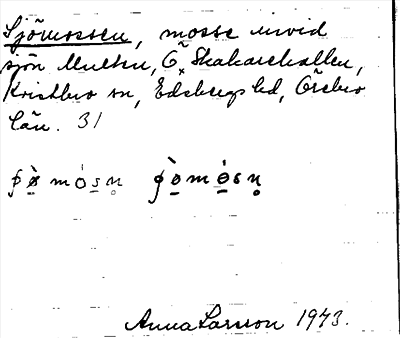 Sjömossen, mosse invid
sjön Multen, Ö Skakarehallen,
Kristbro sn, Edsbergs hd, Örebro
län. 31
Anna Larsson 1973.